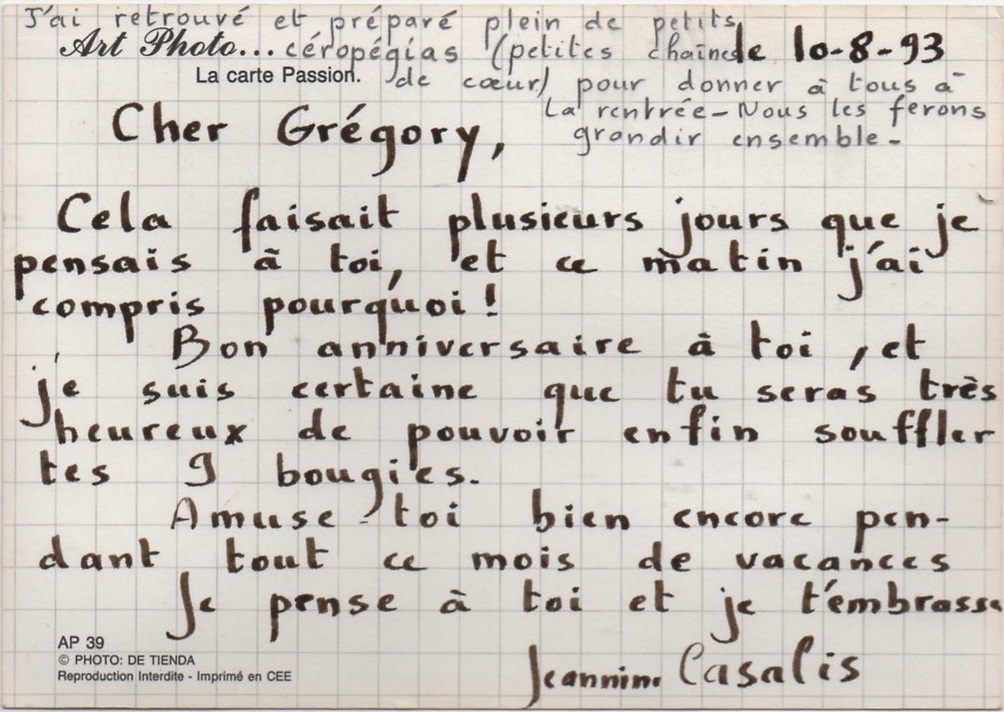 J'ai retrouvé et préparé plein de petits
Art Photo... céropégias (petites chaînes le 10-8-93
La carte Passion. de cœur) pour donner à tous à
la rentrée - Nous les ferons
grandir ensemble -
Cher Grégory,
Cela faisait plusieurs jours que je
pensais à toi, et ce matin j'ai
compris pourquoi !
Bon anniversaire à toi, et
je suis certaine que tu seras très
heureux de pouvoir enfin souffler
tes 9 bougies.
Amuse-toi bien encore pen-
dant tout ce mois de vacances
Je pense à toi et je t'embrasse
Jeannine Casalis
AP 39
© PHOTO: DE TIENDA
Reproduction Interdite - Imprimé en CEE